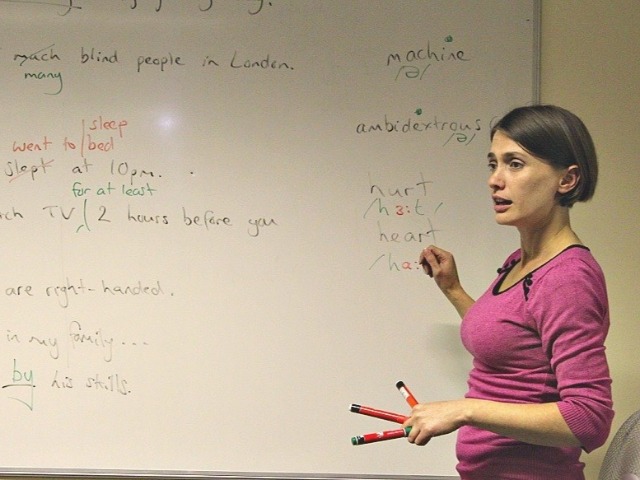 much blind people in London.
many
sleep
went to/bed
slept at 10pm.
for at least
TV/ 2 hours before you
are right-handed.
in my family...
by his skills.
machine
/ə/
ambidextrous
/ə/
hurt
/hɜ:t/
heart
/ha: